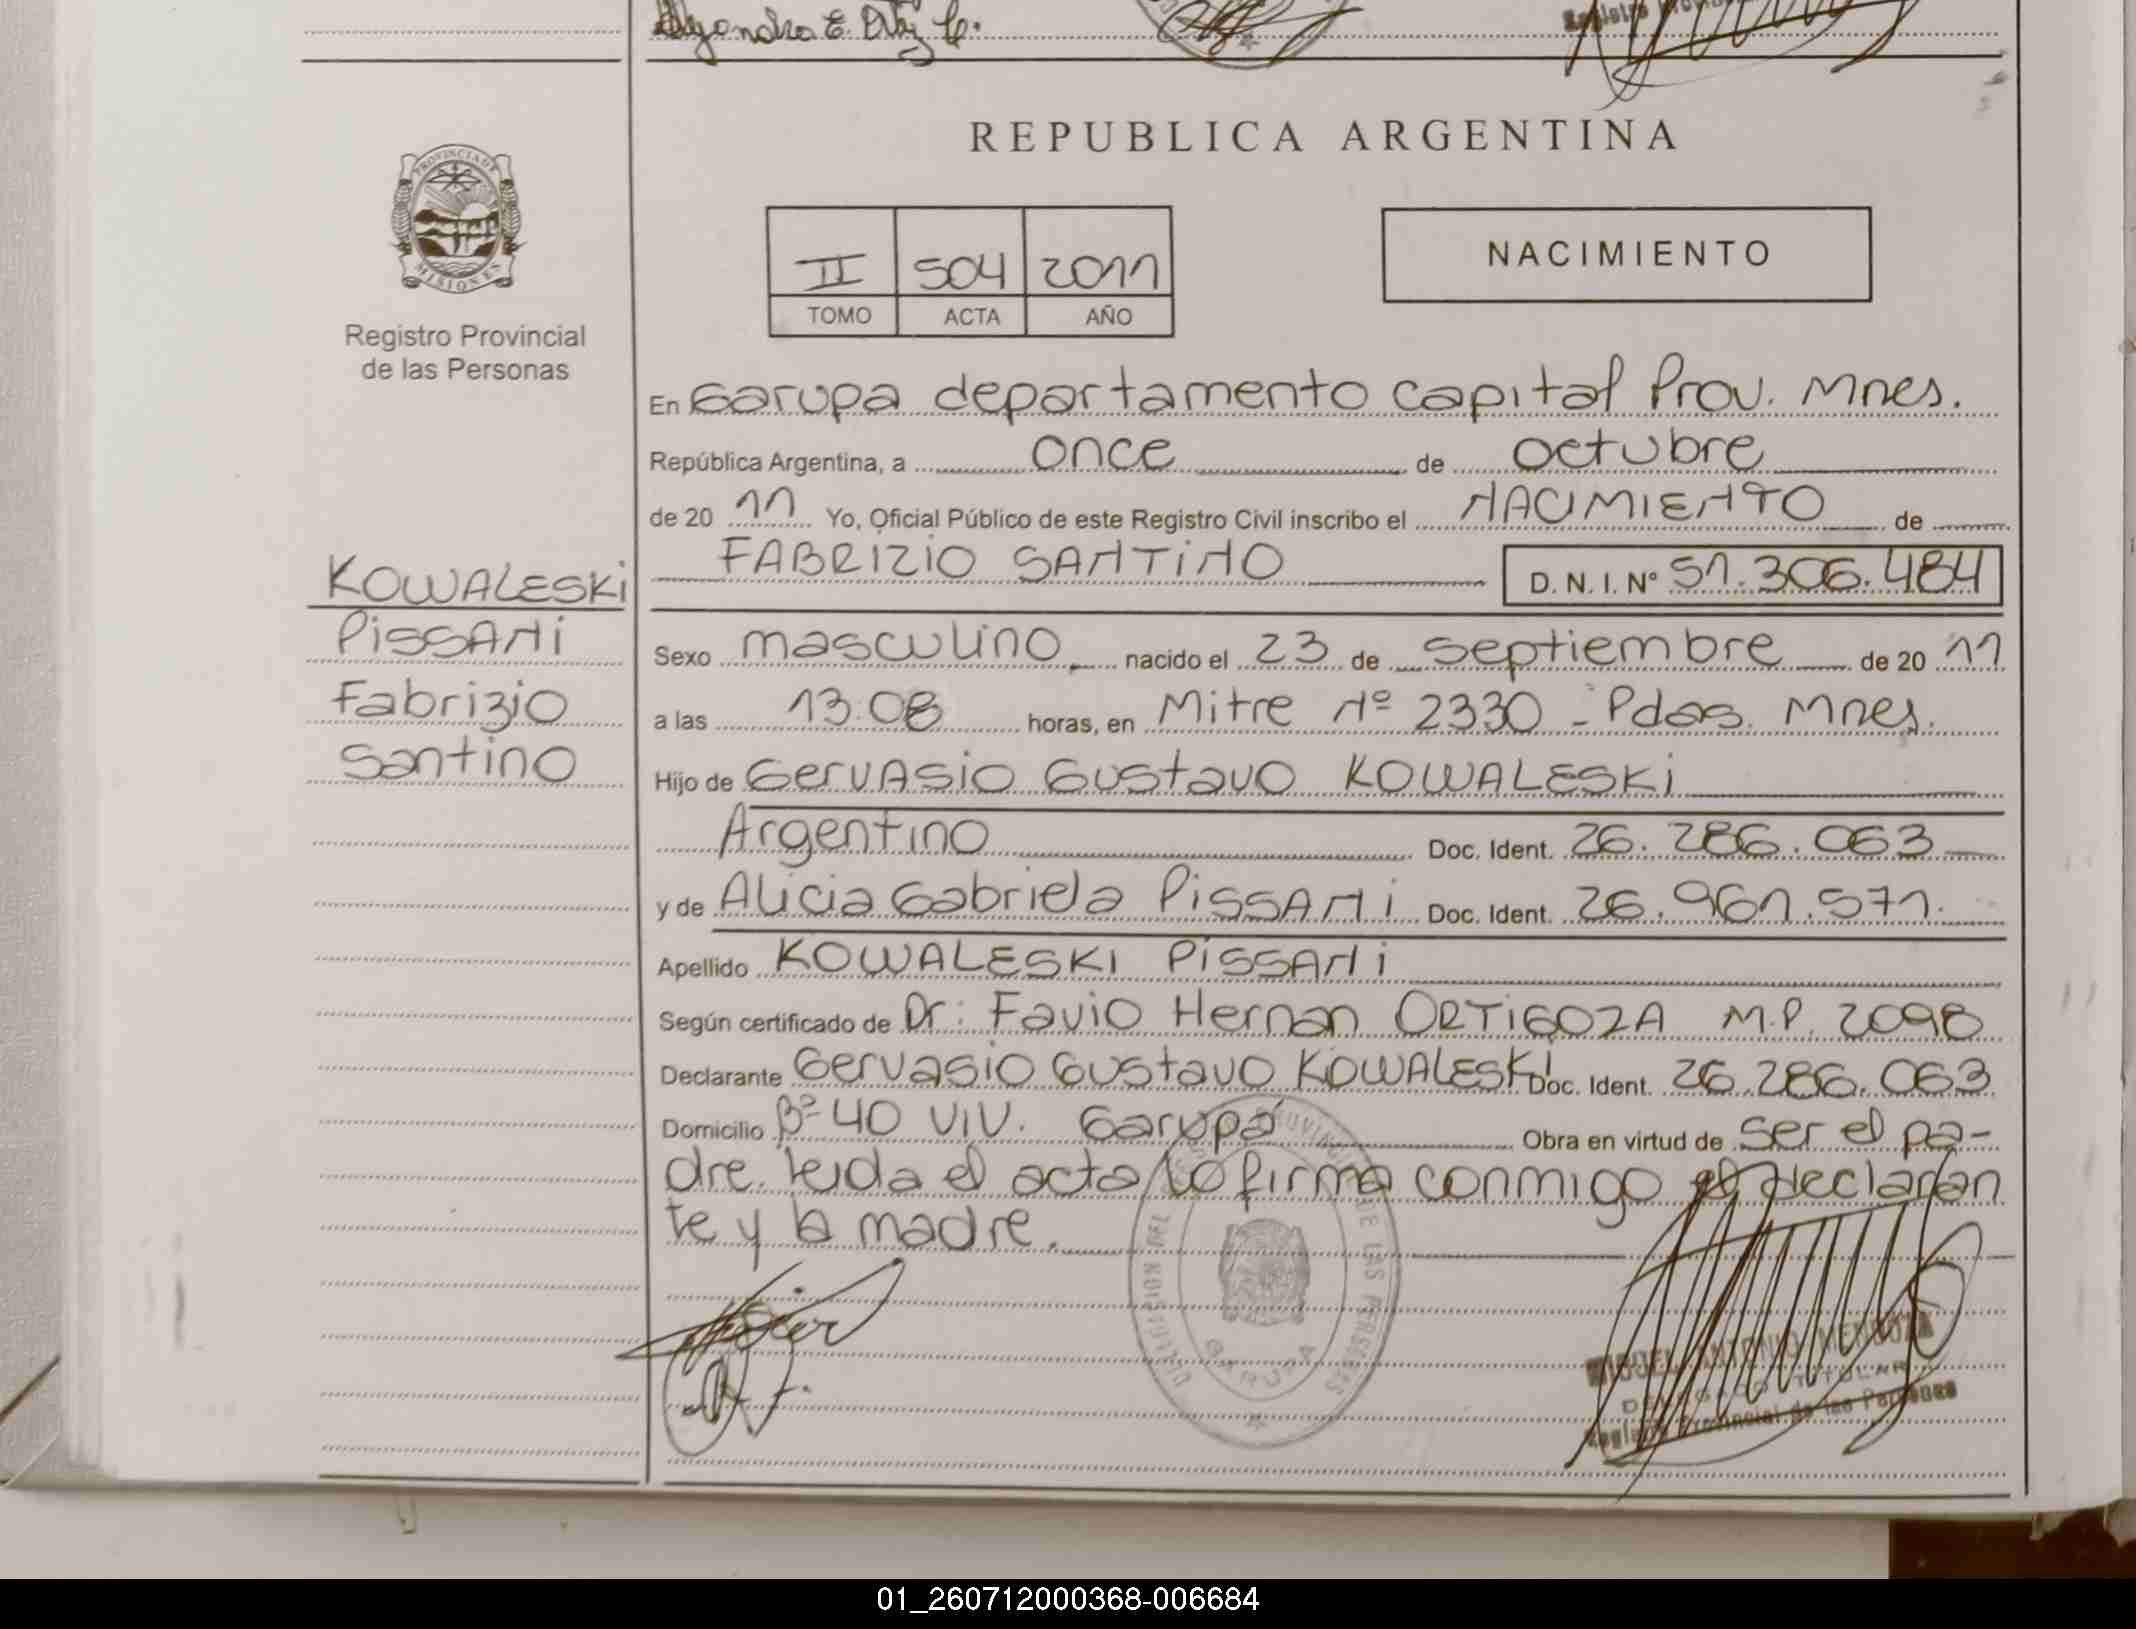 Alejandra E. Díaz C.
REPUBLICA ARGENTINA
PROVINCIA DE MISIONES
Registro Provincial
de las Personas
II 504 2011
TOMO ACTA AÑO
NACIMIENTO
En Garupa departamento Capital Prov. Mnes.
República Argentina, a once de octubre
de 20 11 Yo, Oficial Público de este Registro Civil inscribo el NACIMIENTO de
FABRIZIO SANTINO D. N. I. N° 51.306.484
KOWALESKI
PISSANI
Fabrizio
Santino
Sexo masculino nacido el 23 de septiembre de 20 11
a las 13:08 horas, en Mitre Nº 2330 - Pdas. Mnes.
Hijo de Gervasio Gustavo KOWALESKI
Argentino Doc. Ident. 26.286.063
y de Alicia Gabriela PISSANI Doc. Ident. 26.961.571.
Apellido KOWALESKI PISSANI
Según certificado de Dr: Favio Hernan ORTIGOZA M.P. 2098
Declarante Gervasio Gustavo KOWALESKI Doc. Ident. 26.286.063
Domicilio Bº 40 VIV. Garupá Obra en virtud de ser el pa-
dre. leida el acta la firma conmigo el declaran
te y la madre.
GARUPA
MIGUEL ANTONIO MENDOZA
DELEGADO TITULAR
Registro Provincial de las Personas
01_260712000368-006684